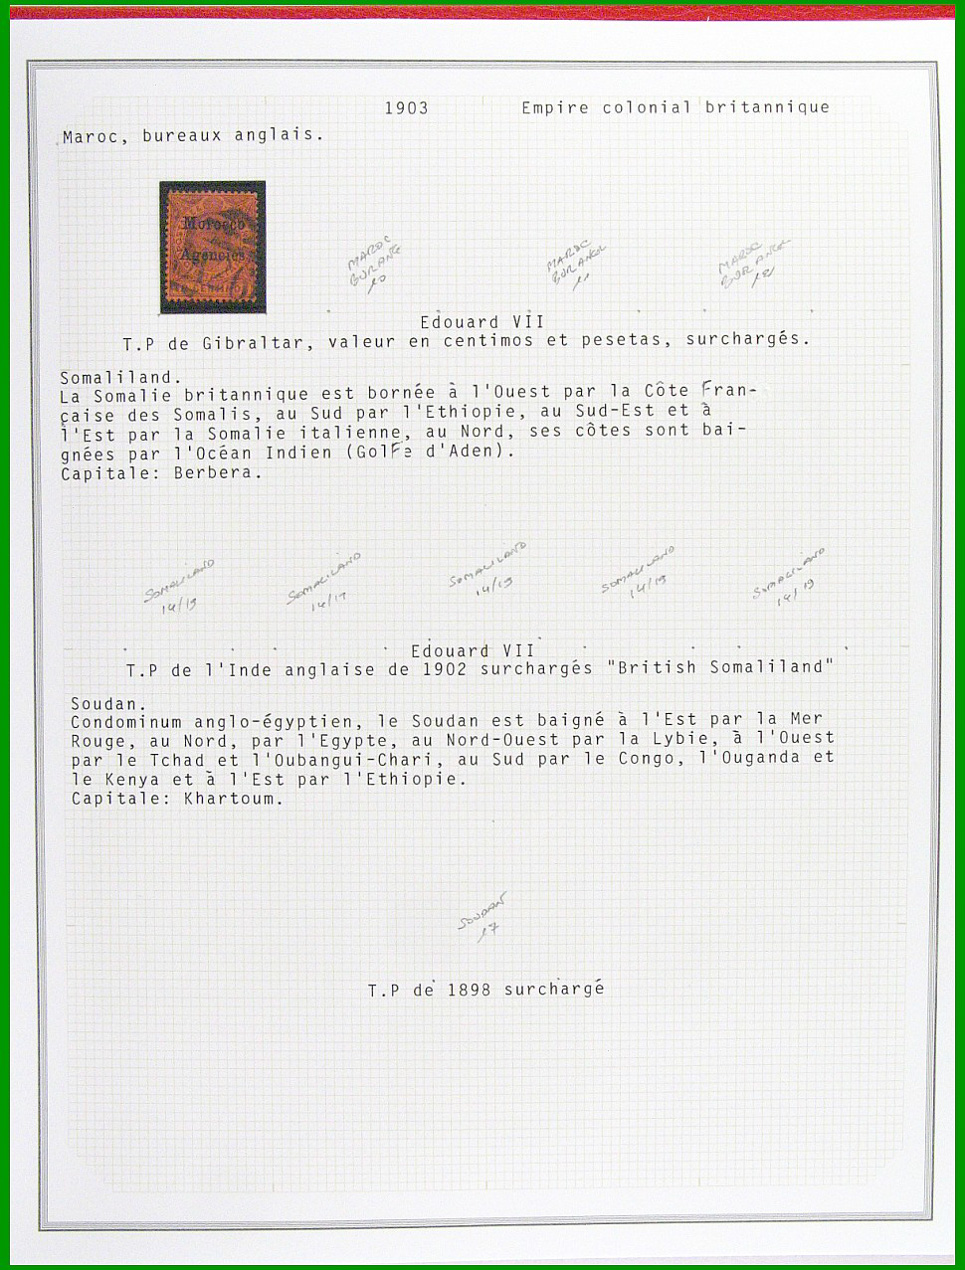 1903 Empire colonial britannique
Maroc, bureaux anglais.
Morocco
Agencies
MAROC
MAROC
MAROC
Edouard VII
T.P de Gibraltar, valeur en centimos et pesetas, surchargés.
Somaliland.
La Somalie britannique est bornée à l'Ouest par la Côte Fran-
çaise des Somalis, au Sud par l'Ethiopie, au Sud-Est et à
l'Est par la Somalie italienne, au Nord, ses côtes sont bai-
gnées par l'Océan Indien (Golfe d'Aden).
Capitale: Berbera.
SOMALILAND
14/19
SOMALILAND
SOMALILAND
14/19
SOMALILAND
14/19
SOMALILAND
14/19
Edouard VII
T.P de l'Inde anglaise de 1902 surchargés "British Somaliland"
Soudan.
Condominum anglo-égyptien, le Soudan est baigné à l'Est par la Mer
Rouge, au Nord, par l'Egypte, au Nord-Ouest par la Lybie, à l'Ouest
par le Tchad et l'Oubangui-Chari, au Sud par le Congo, l'Ouganda et
le Kenya et à l'Est par l'Ethiopie.
Capitale: Khartoum.
SOUDAN
17
T.P de 1898 surchargé